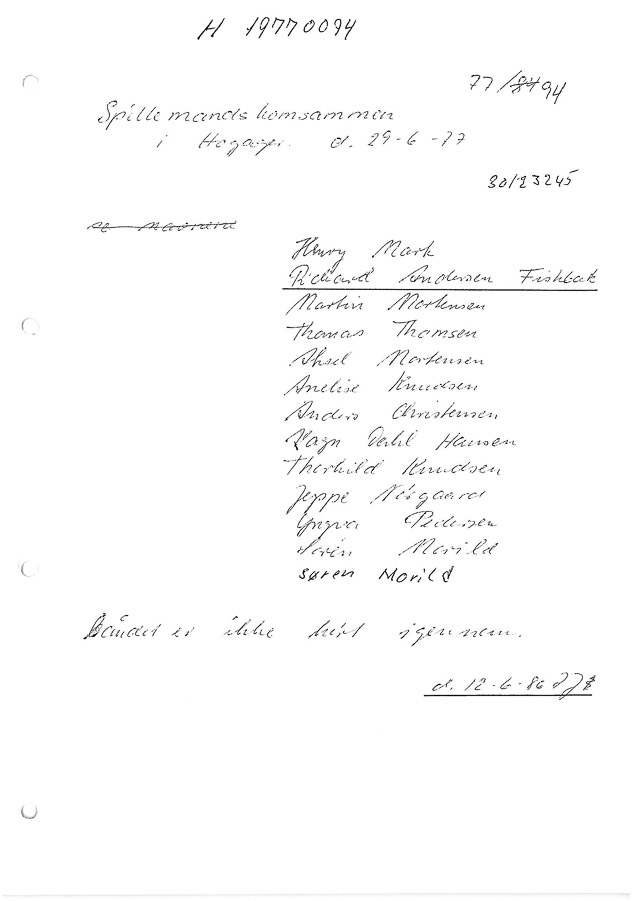 H 19770094
77/84 94
Spillemandskomsammen
i Hogager. d. 29-6-77
30/23245
Henry Mark
Richard Andersen Fiskbæk
Martin Mortensen
Thomas Thomsen
Aksel Mortensen
Anelise Knudsen
Anders Christensen
Vagn Dahl Hansen
Thorkild Knudsen
Jeppe Nörgaard
Yngva Pedersen
Sørin Morild
søren Morild
Båndet er ikke hört igennem.
d. 12-6-86